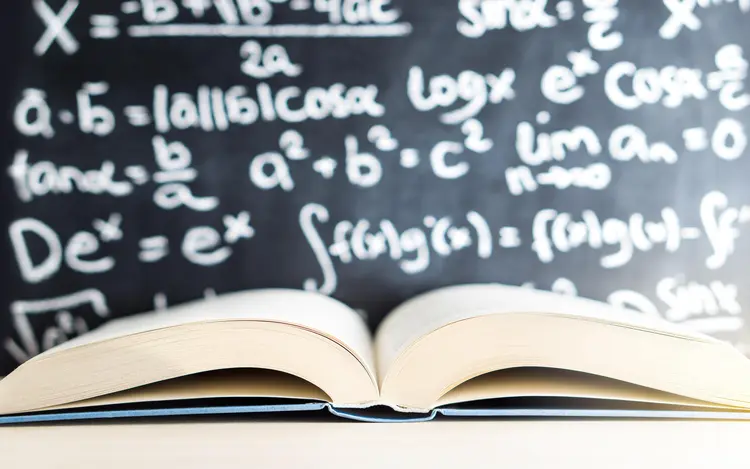 x = -b+√b²-4ac / 2a sinα = c/c xᵐ
ā·b̄ = |a||b|cosα logx eˣ cosα = a/c
tanα = b/a a² + b² = c² lim n→∞ aₙ = 0
Deˣ = eˣ ∫f(x)g'(x) = f(x)g(x) - ∫f'
√a² D sinx